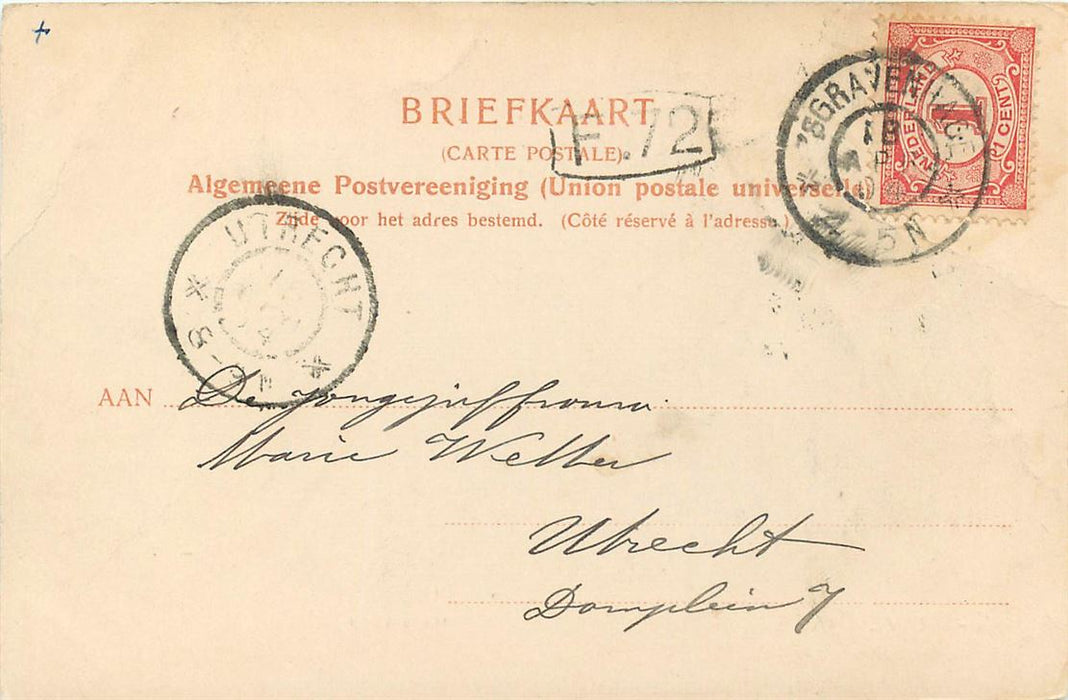 BRIEFKAART
(CARTE POSTALE).
F.72
Algemeene Postvereeniging (Union postale universelle)
Zijde voor het adres bestemd. (Côté réservé à l'adresse.)
NEDERLAND
1
1 CENT
'SGRAVENHAGE
5 N
UTRECHT
AAN De jongejuffrouw
Marie Welter
Utrecht
Domplein 7